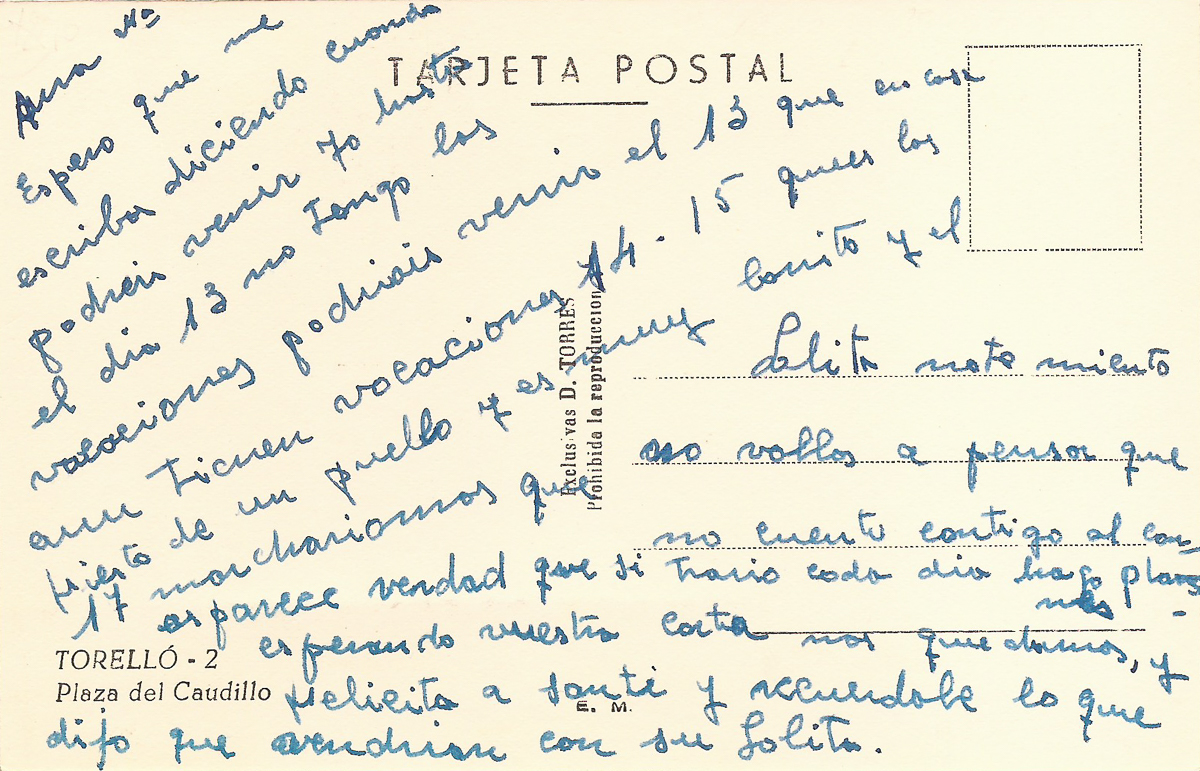 TARJETA POSTAL
Ana Mª
Espero que me
escribas diciendo cuando
podreis venir yo hasta
el dia 13 no tengo las
vacaciones podriais venir el 13 que en casa
aun tienen vacaciones 14 - 15 que es las
fiesta de un pueblo y es muy bonito y el
17 marchariamos que
os parece verdad que si
esperando vuestra carta nos quedamos, y
felicita a Santi y recuerdale lo que
dijo que vendrian con su Lolita.
Lolita no te miento
no vallas a pensar que
no cuento contigo al con-
trario cada dia hago planes
Exclusivas D. TORRES
Prohibida la reproduccion
TORELLÓ - 2
Plaza del Caudillo
E. M.